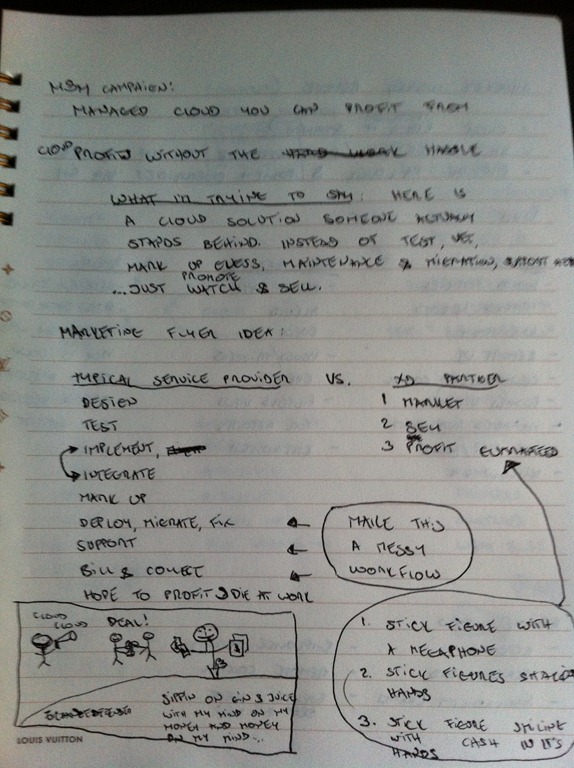 MSM CAMPAIGN:
MANAGED CLOUD YOU CAN PROFIT FROM
CLOUD PROFITS WITHOUT THE HARD WORK HASSLE
WHAT I'M TRYING TO SAY: HERE IS
A CLOUD SOLUTION SOMEONE ACTUALLY
STANDS BEHIND. INSTEAD OF TEST, VET,
MARK UP GUESS, MAINTENANCE & MIGRATION, SUPPORT
PROMOTE
...JUST WATCH & SELL.
MARKETING FLYER IDEA:
TYPICAL SERVICE PROVIDER VS. XD PARTNER
DESIGN 1 MARKET
TEST 2 SELL
IMPLEMENT, 3 PROFIT GUARANTEED
INTEGRATE
MARK UP
DEPLOY, MIGRATE, FIX MAKE THIS
SUPPORT A MESSY
BILL & COLLECT WORKFLOW
HOPE TO PROFIT & DIE AT WORK
CLOUD
CLOUD
DEAL!
SIPPIN ON GIN & JUICE
WITH MY MIND ON MY
MONEY AND MONEY
ON MY MIND...
1. STICK FIGURE WITH
A MEGAPHONE
2. STICK FIGURES SHAKING
HANDS
3. STICK FIGURE SMILING
WITH CASH IN IT'S
HANDS
LOUIS VUITTON